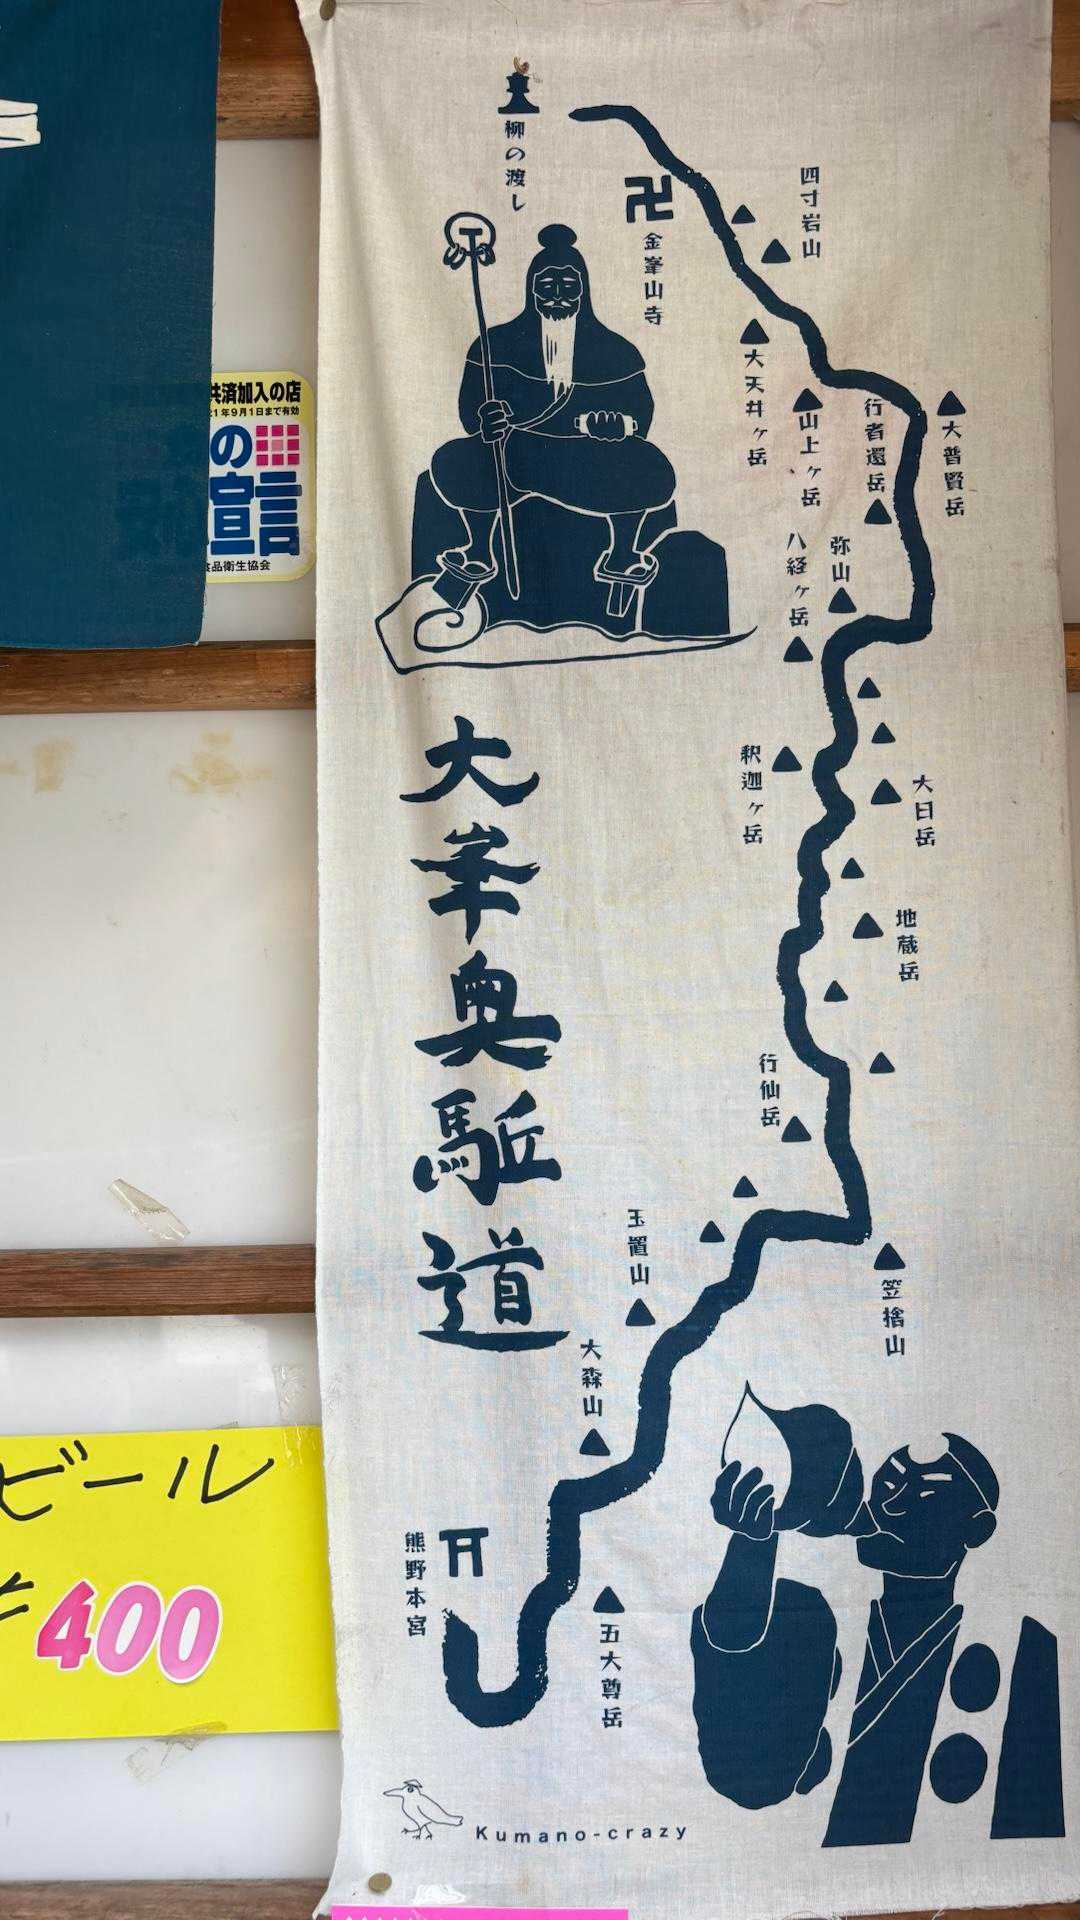 柳の渡し
金峯山寺
四寸岩山
大天井ヶ岳
山上ヶ岳
行者還岳
大普賢岳
弥山
八経ヶ岳
釈迦ヶ岳
大日岳
地蔵岳
行仙岳
笠捨山
玉置山
大森山
五大尊岳
熊野本宮
大峯奥駈道
Kumano-crazy
共済加入の店
1年9月1日まで有効
の
宣言
食品衛生協会
ビール
400